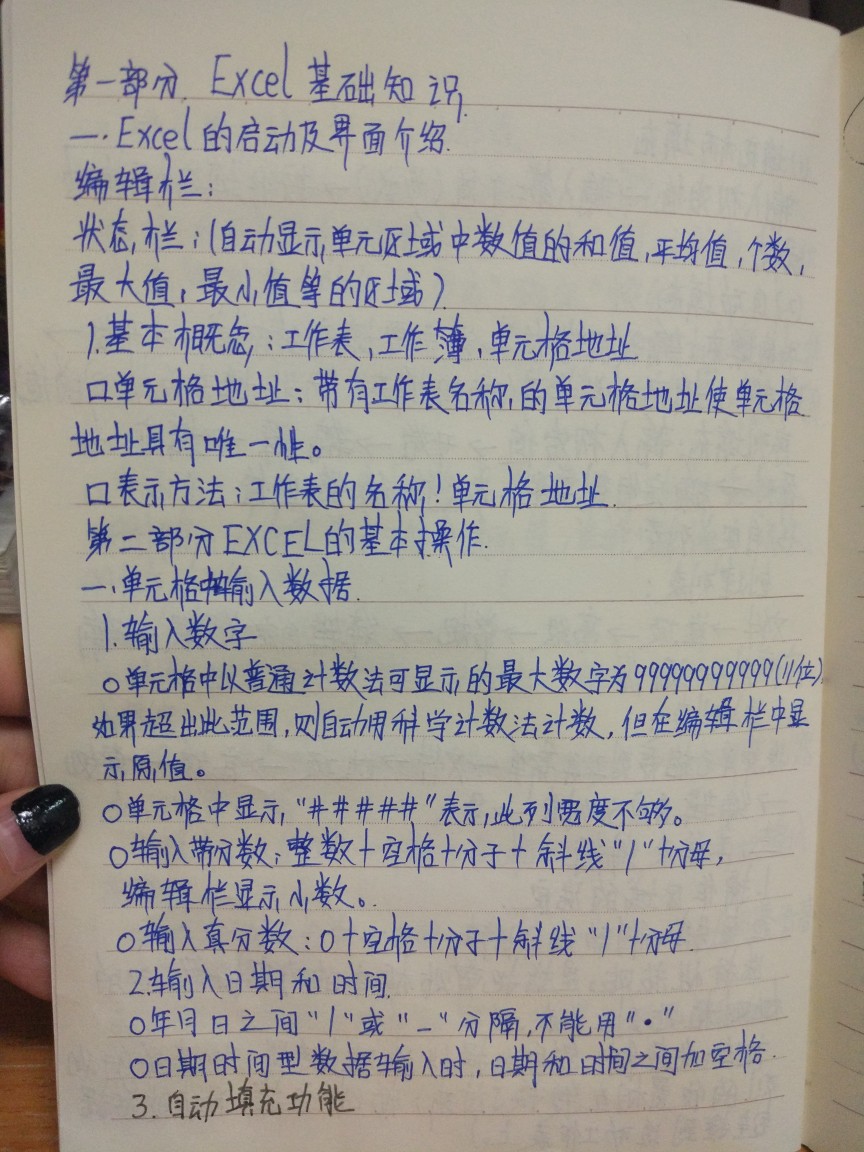 第一部分. Excel 基础知识
一. Excel 的启动及界面介绍.
编辑栏:
状态栏:(自动显示单元区域中数值的和值,平均值,个数,
最大值,最小值等的区域)
1.基本概念:工作表,工作簿,单元格地址
口单元格地址:带有工作表名称的单元格地址使单元格
地址具有唯一性。
口表示方法:工作表的名称!单元格地址.
第二部分 EXCEL的基本操作.
一.单元格中输入数据.
1.输入数字
○单元格中以普通计数法可显示的最大数字为99999999999(11位)
如果超出此范围,则自动用科学计数法计数,但在编辑栏中显
示原值。
○单元格中显示"#####"表示此列宽度不够。
○输入带分数:整数+空格+分子+斜线"/"+分母,
编辑栏显示小数。
○输入真分数:0+空格+分子+斜线"/"+分母.
2.输入日期和时间.
○年月日之间"/"或"-"分隔,不能用"•"
○日期时间型数据输入时,日期和时间之间加空格.
3.自动填充功能